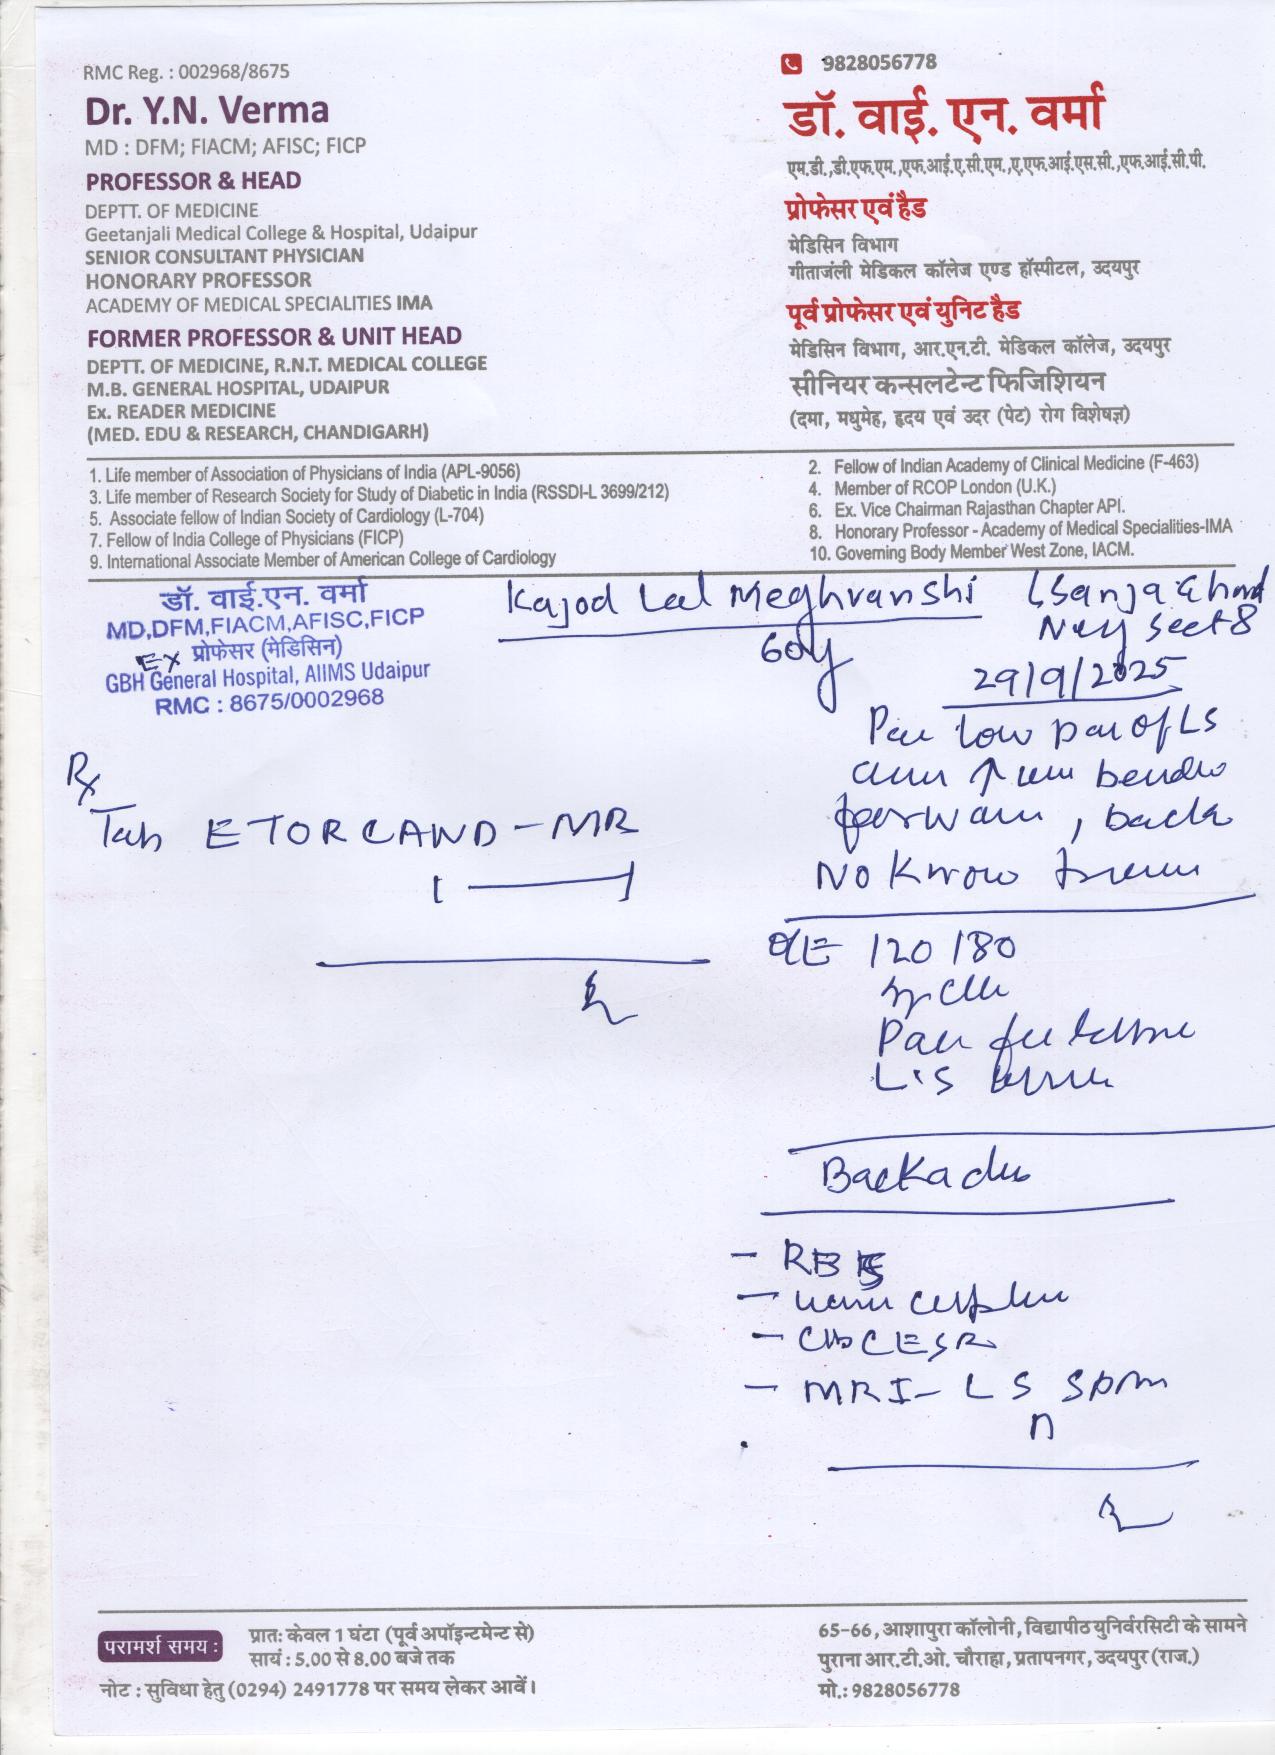 RMC Reg. : 002968/8675
Dr. Y.N. Verma
MD : DFM; FIACM; AFISC; FICP
PROFESSOR & HEAD
DEPTT. OF MEDICINE
Geetanjali Medical College & Hospital, Udaipur
SENIOR CONSULTANT PHYSICIAN
HONORARY PROFESSOR
ACADEMY OF MEDICAL SPECIALITIES IMA
FORMER PROFESSOR & UNIT HEAD
DEPTT. OF MEDICINE, R.N.T. MEDICAL COLLEGE
M.B. GENERAL HOSPITAL, UDAIPUR
Ex. READER MEDICINE
(MED. EDU & RESEARCH, CHANDIGARH)
9828056778
डॉ. वाई. एन. वर्मा
एम.डी.,डी.एफ.एम.,एफ.आई.ए.सी.एम.,ए.एफ.आई.एस.सी.,एफ.आई.सी.पी.
प्रोफेसर एवं हैड
मेडिसिन विभाग
गीताजंली मेडिकल कॉलेज एण्ड हॉस्पीटल, उदयपुर
पूर्व प्रोफेसर एवं युनिट हैड
मेडिसिन विभाग, आर.एन.टी. मेडिकल कॉलेज, उदयपुर
सीनियर कन्सलटेन्ट फिजिशियन
(दमा, मधुमेह, हृदय एवं उदर (पेट) रोग विशेषज्ञ)
1. Life member of Association of Physicians of India (APL-9056)
2. Fellow of Indian Academy of Clinical Medicine (F-463)
3. Life member of Research Society for Study of Diabetic in India (RSSDI-L 3699/212)
4. Member of RCOP London (U.K.)
5. Associate fellow of Indian Society of Cardiology (L-704)
6. Ex. Vice Chairman Rajasthan Chapter API.
7. Fellow of India College of Physicians (FICP)
8. Honorary Professor - Academy of Medical Specialities-IMA
9. International Associate Member of American College of Cardiology
10. Governing Body Member West Zone, IACM.
डॉ. वाई.एन. वर्मा
MD,DFM,FIACM,AFISC,FICP
EX प्रोफेसर (मेडिसिन)
GBH General Hospital, AIIMS Udaipur
RMC : 8675/0002968
Kajod Lal Meghvanshi
60y
Sect 8
29/9/2025
low of LS
, back
No Know
Rx
Tab ETORCAND-MR
1 — 1
O/E 120/80
L.S
Backache
- RBS
-
- CBC ESR
- MRI - LS Spine
परामर्श समय :
प्रात: केवल 1 घंटा (पूर्व अपॉइन्टमेन्ट से)
सायं : 5.00 से 8.00 बजे तक
नोट : सुविधा हेतु (0294) 2491778 पर समय लेकर आवें।
65-66, आशापुरा कॉलोनी, विद्यापीठ युनिर्वरसिटी के सामने
पुराना आर.टी.ओ. चौराहा, प्रतापनगर, उदयपुर (राज.)
मो.: 9828056778